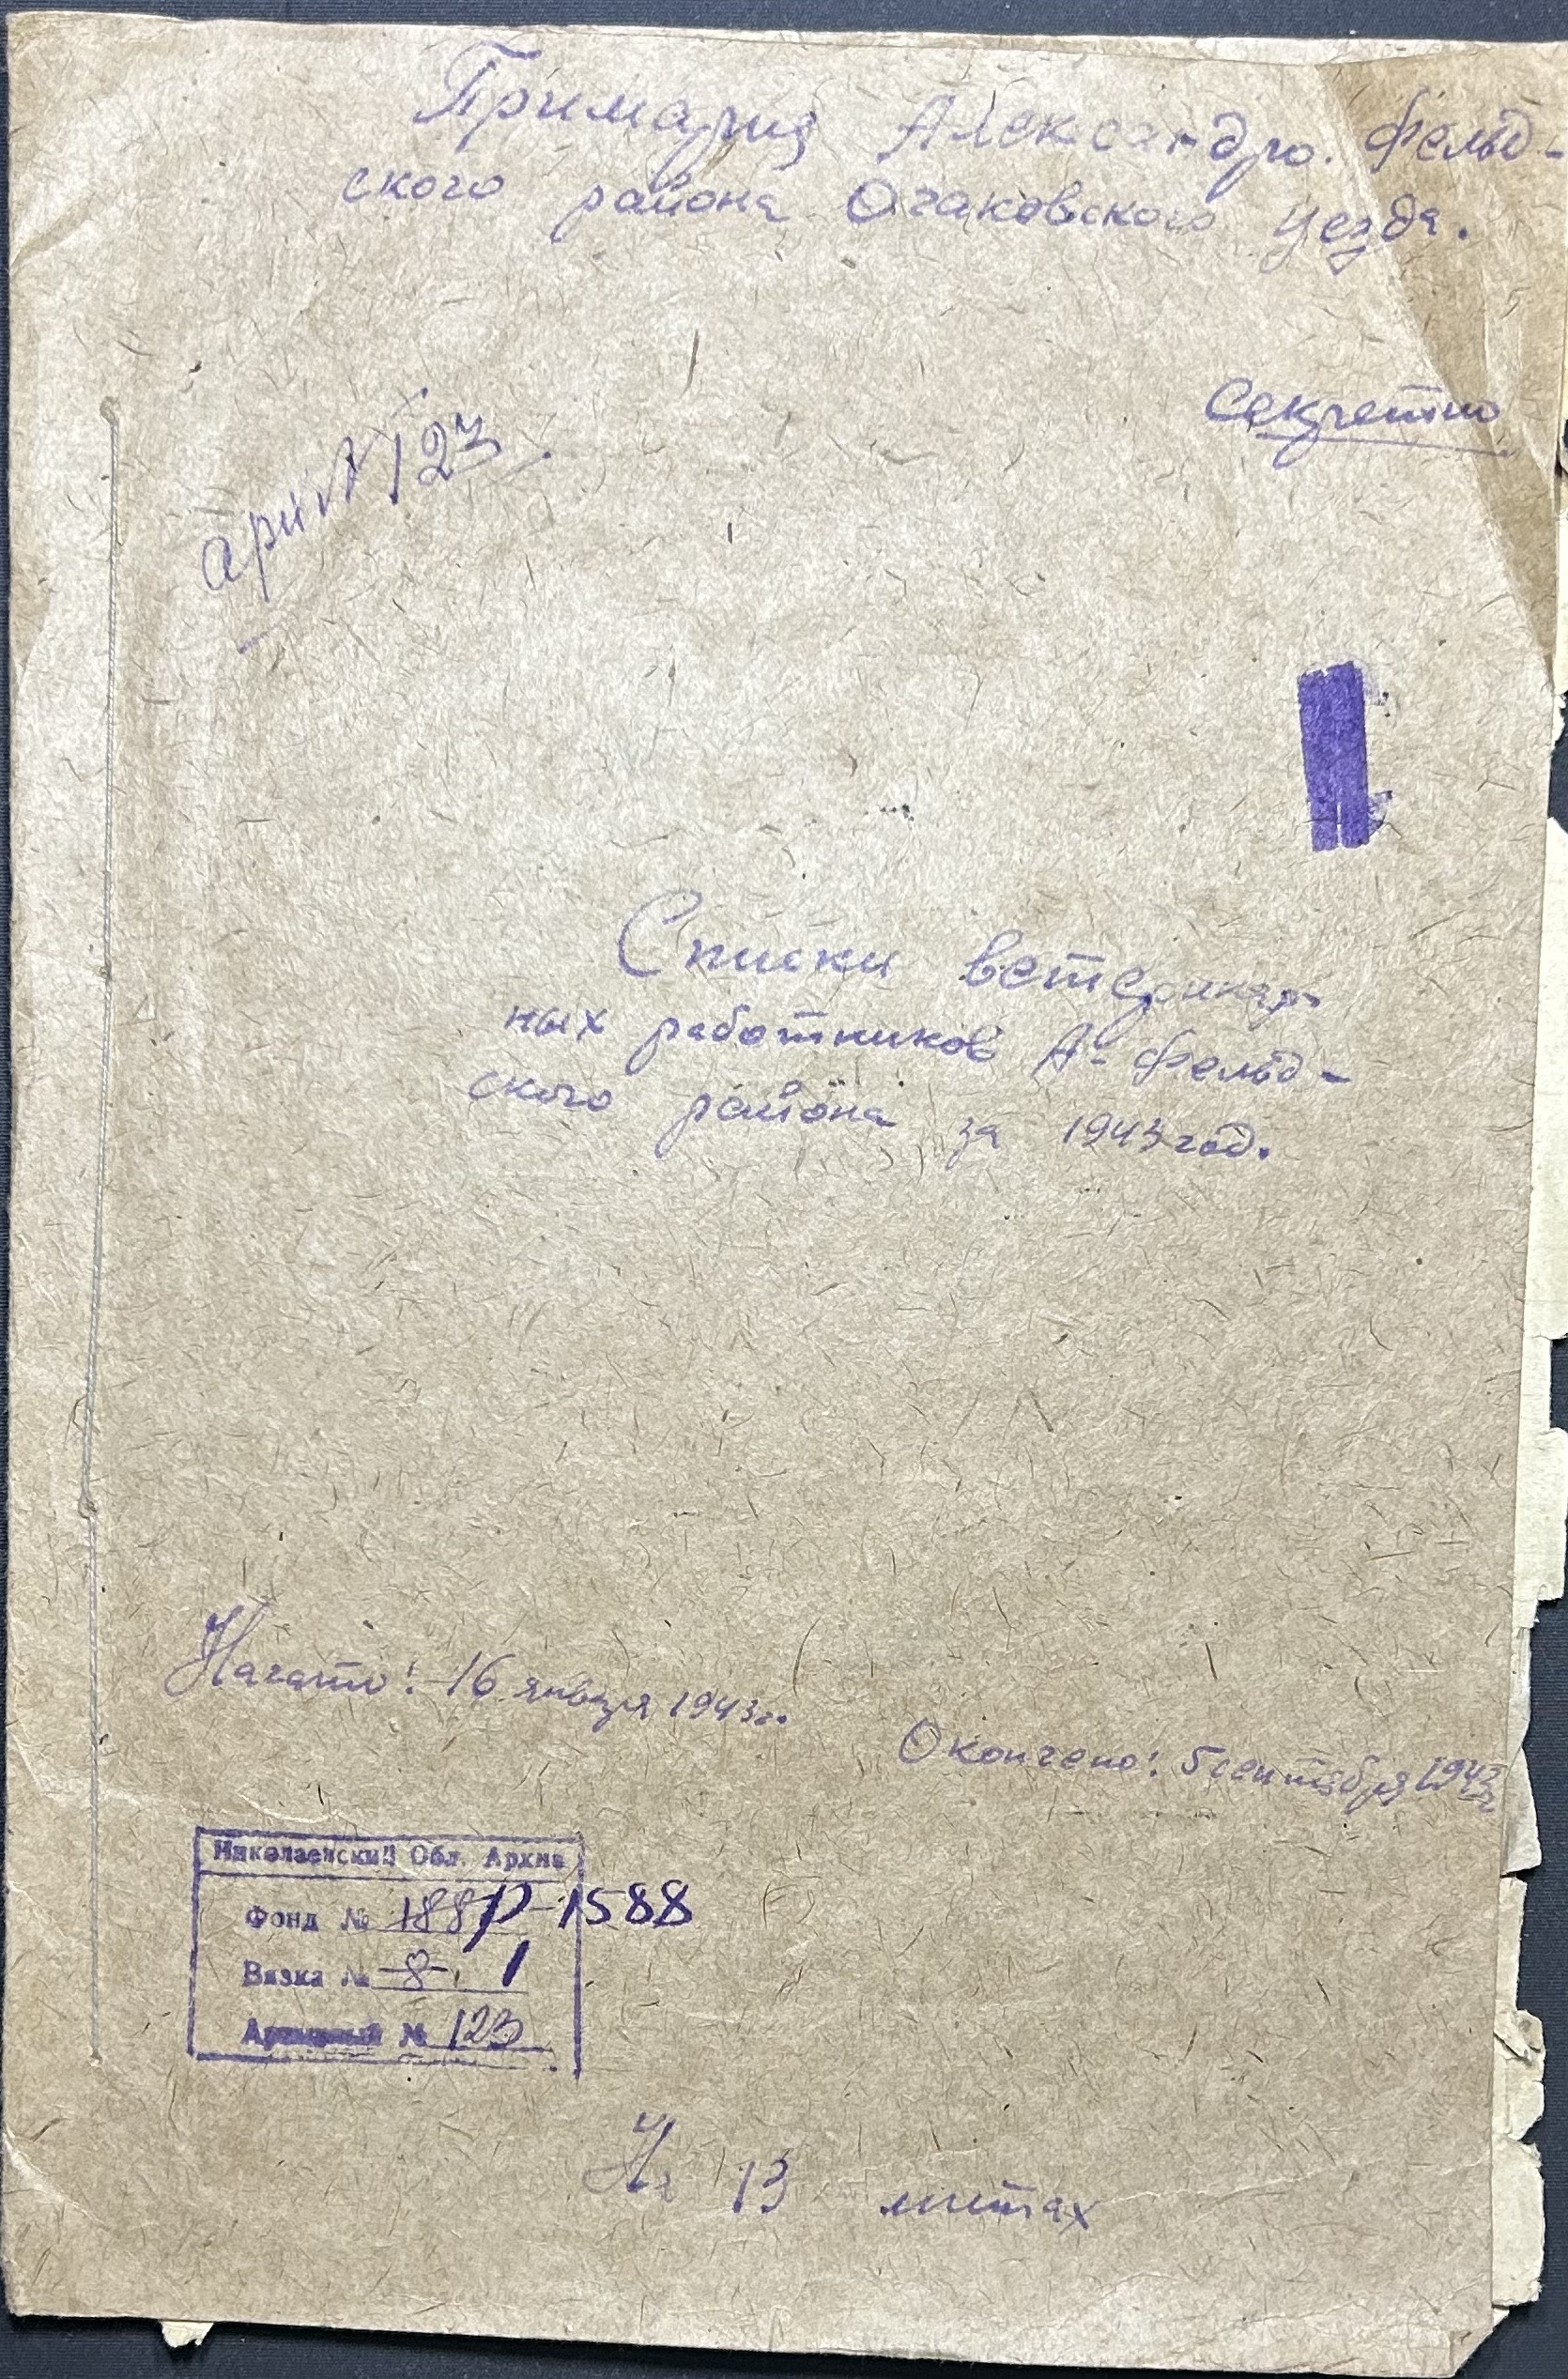 Примария Александро. Фельд-
ского района Очаковского уезда.
Секретно
арх № 123
Списки ветеринар-
ных работников А-Фельд-
ского района за 1943 год.
Начато: 16 января 1943г.
Окончено: 5 сентября 1943г
Николаевский Обл. Архив
Фонд № 188 Р-1588
Вязка № 8 1
Архивный № 123
На 13 листах